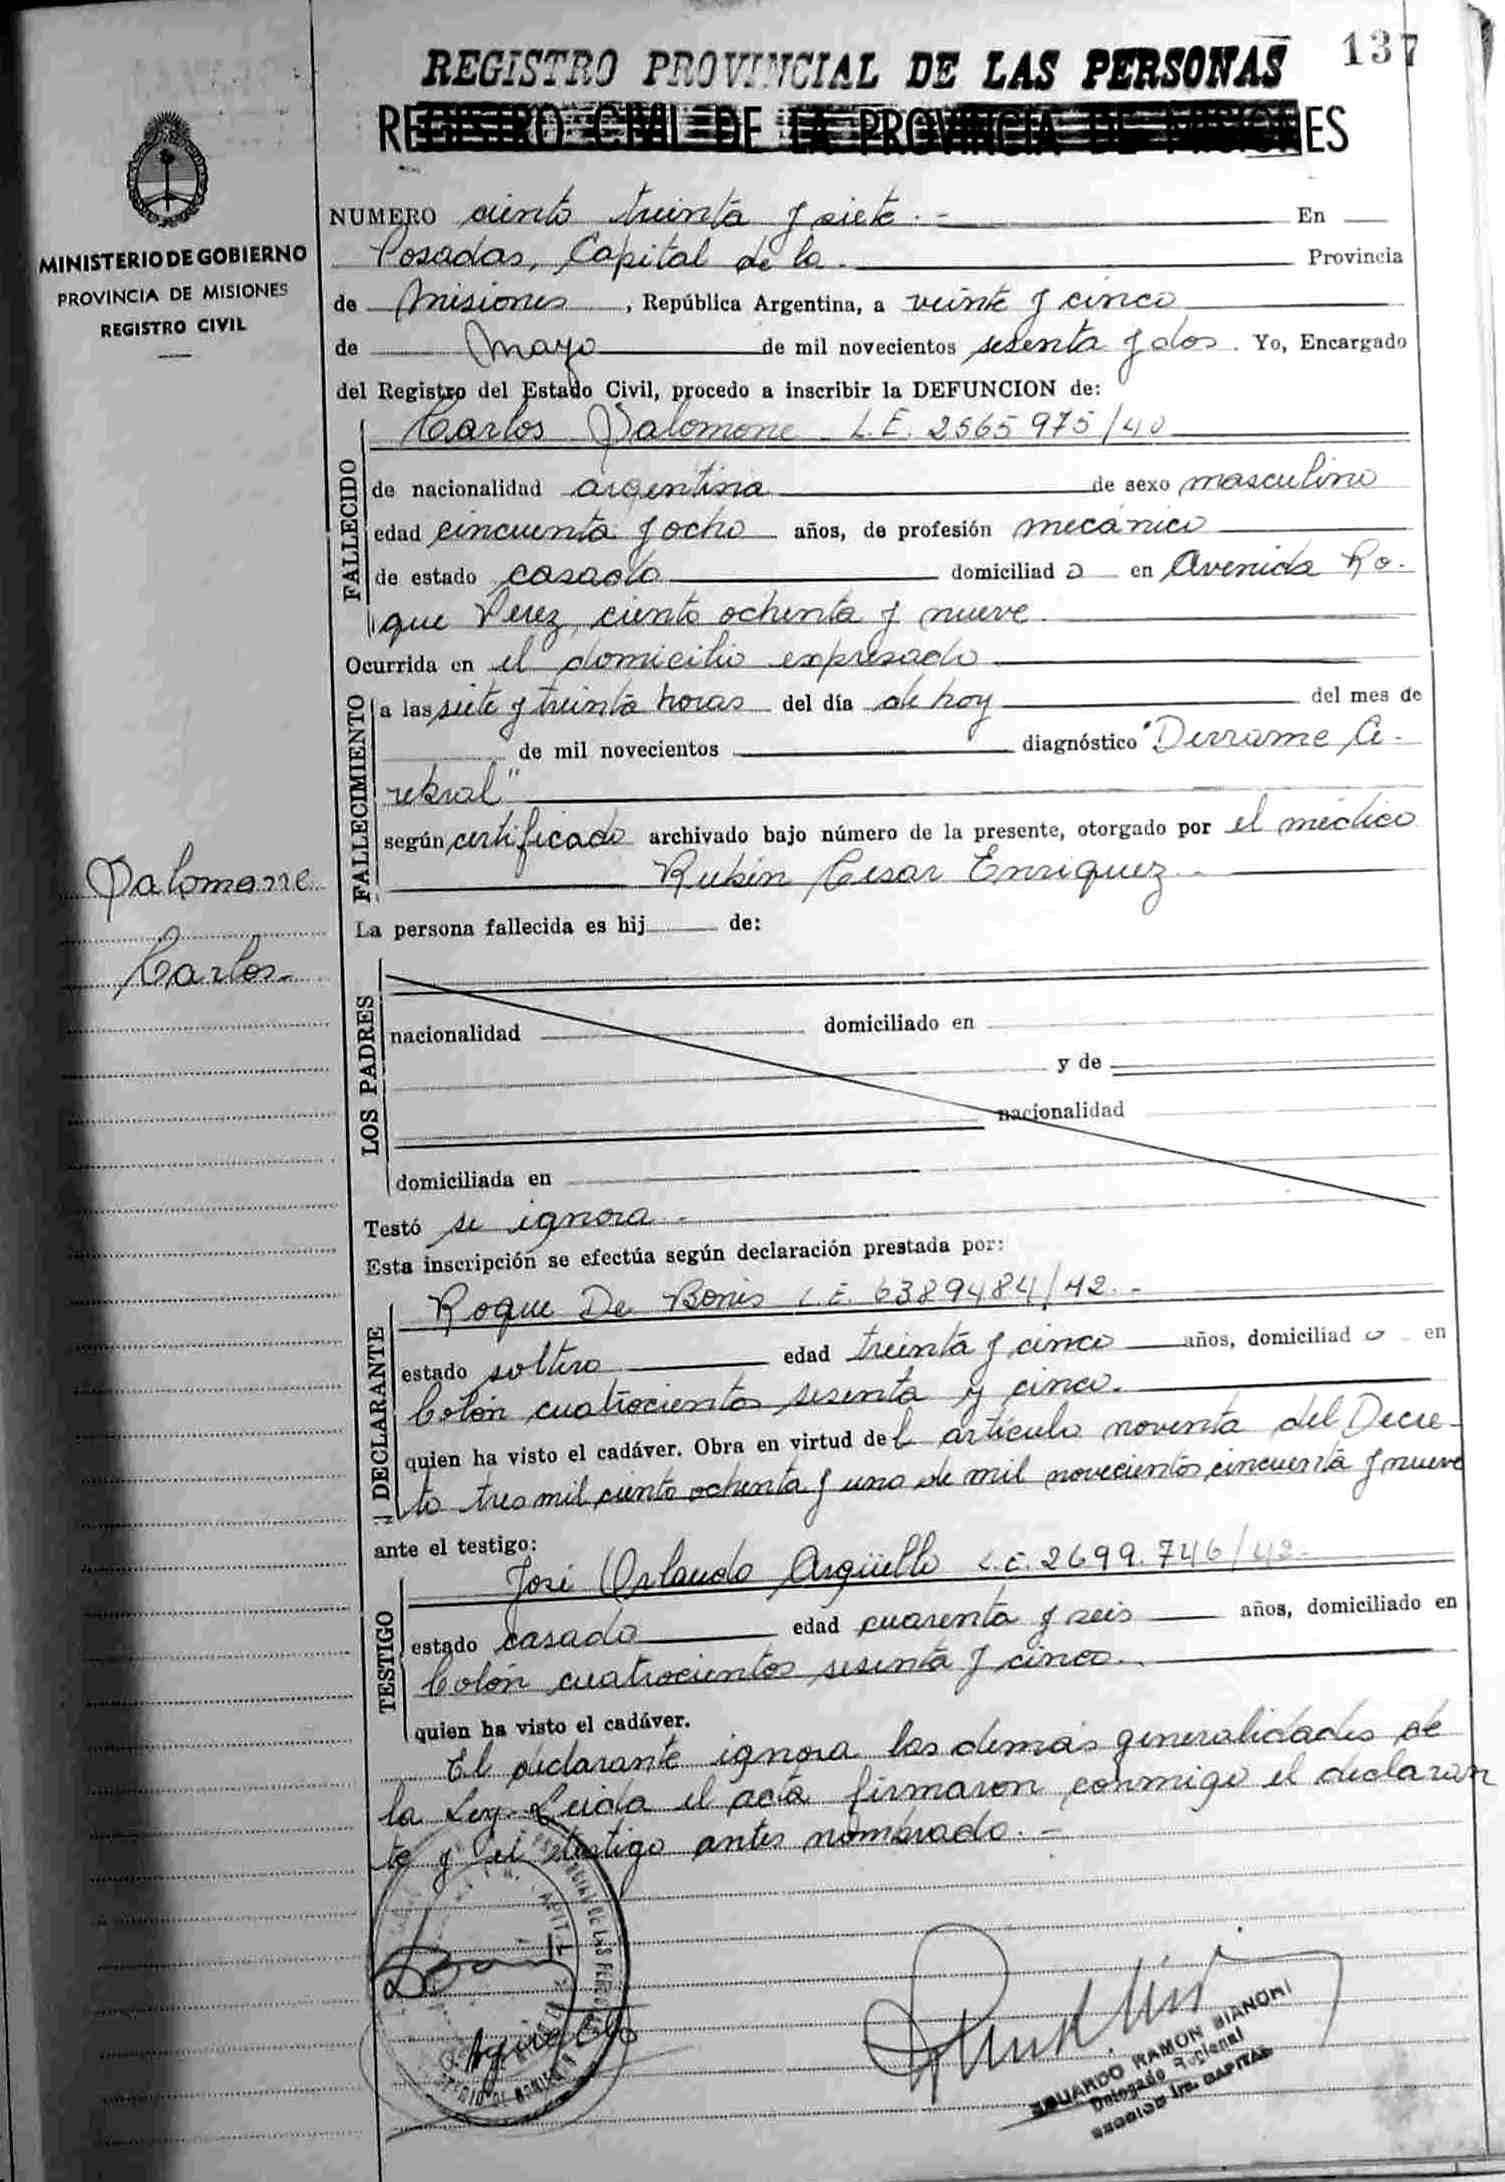 137
REGISTRO PROVINCIAL DE LAS PERSONAS
REGISTRO CIVIL DE LA PROVINCIA DE MISIONES
MINISTERIO DE GOBIERNO
PROVINCIA DE MISIONES
REGISTRO CIVIL
NUMERO ciento treinta y siete.- En
Posadas, Capital de la. Provincia
de Misiones, República Argentina, a veinte y cinco
de Mayo de mil novecientos sesenta y dos. Yo, Encargado
del Registro del Estado Civil, procedo a inscribir la DEFUNCION de:
FALLECIDO
Carlos Palomone L.E. 2565975/40
de nacionalidad argentina de sexo masculino
edad cincuenta y ocho años, de profesión mecánico
de estado casado domiciliado en Avenida Ro-
que Perez, ciento ochenta y nueve.
Ocurrida en el domicilio expresado
FALLECIMIENTO
a las siete y treinta horas del día de hoy del mes de
de mil novecientos diagnóstico "Derrame Ce-
rebral"
según certificado archivado bajo número de la presente, otorgado por el médico
Rubén Cesar Enriquez.-
Palomone
Carlos-
La persona fallecida es hij de:
LOS PADRES
nacionalidad domiciliado en
y de
nacionalidad
domiciliada en
Testó se ignora.-
Esta inscripción se efectúa según declaración prestada por:
DECLARANTE
Roque De Bonis L.E. 6389484/42.-
estado soltero edad treinta y cinco años, domiciliado en
Colón cuatrocientos sesenta y cinco.
quien ha visto el cadáver. Obra en virtud del artículo noventa del Decre-
to tres mil ciento ochenta y uno de mil novecientos cincuenta y nueve
ante el testigo:
TESTIGO
José Orlando Argüello L.E. 2699.746/42-
estado casado edad cuarenta y seis años, domiciliado en
Colón cuatrocientos sesenta y cinco.
quien ha visto el cadáver.
El declarante ignora las demás generalidades de
la Ley. Leida el acta firmaron conmigo el declaran
te y el testigo antes nombrado.-
EDUARDO RAMON BIANCHI
Delegado Regional
CAPITAL